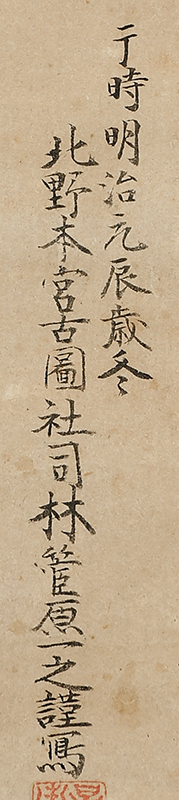 于時明治元辰歳冬
北野本宮古圖社司林菅原一之謹寫